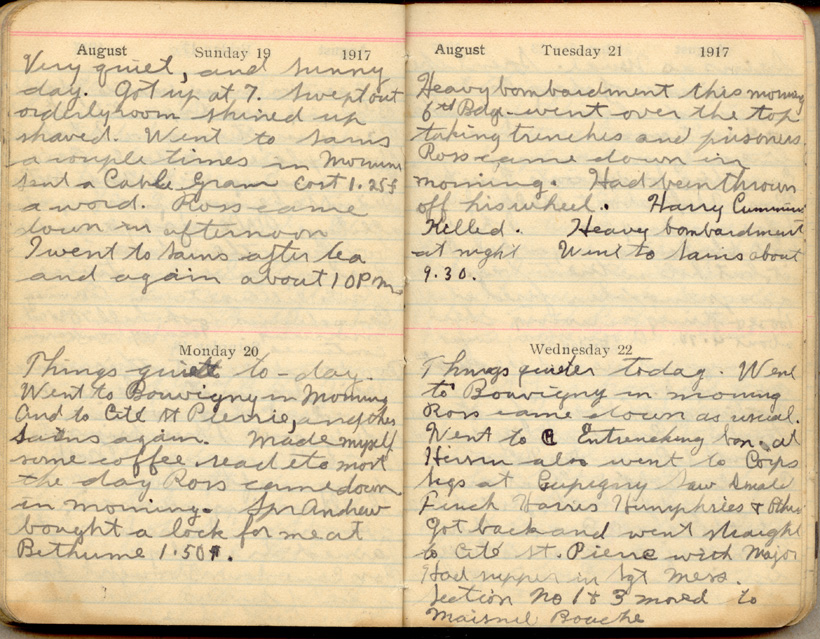 August Sunday 19 1917
Very quiet, and sunny
day. Got up at 7. Swept out
orderly room shined up
shaved. Went to Sains
a couple times in Morning
sent a Cable Gram cost 1.25f
a word. Ross came
down in afternoon
I went to Sains after tea
and again about 10 P.m.
Monday 20
Things quiet to-day.
Went to Bouvigny in Morning
And to Cité St Pierrie, and
Sains again. Made myself
some coffee read etc most
the day Ross came down
in morning. Spr Andrew
bought a lock for me at
Bethume 1.50f.
August Tuesday 21 1917
Heavy bombardment this morning
6th Bdg. went over the top
taking trenches and prisoners.
Ross came down in
morning. Had been thrown
off his wheel. Harry Cummins
Killed. Heavy bombardment
at night Went to Sains about
9.30.
Wednesday 22
Things quieter today. Went
to Bouvigny in morning
Ross came down as usual.
Went to Entrenching bn. at
Hersin also went to Corps
sigs at Cupigny Saw
Finch Harris Humphries & Others
Got back and went straight
to Cité St. Pierre with Major
Had supper in Sgt Mess.
Section No 1 & 3 moved to
Maisnil Bouche